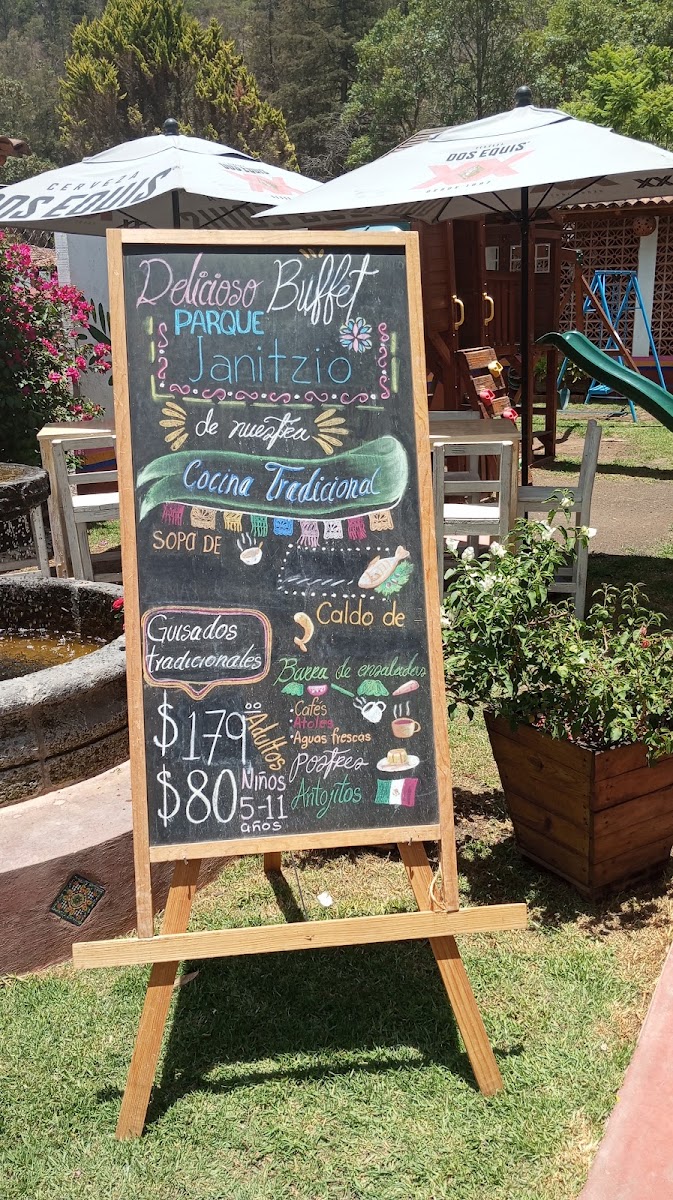 CERVEZA
DOS EQUIS
DOS EQUIS
XX
Delicioso Buffet
PARQUE
Janitzio
de nuestra
Cocina Tradicional
SOPA DE
Caldo de
Guisados
tradicionales
Barra de ensaladas
$179 00 Adultos
$80 Niños
5-11
años
• Cafés
• Atoles
• Aguas frescas
Postres
Antojitos